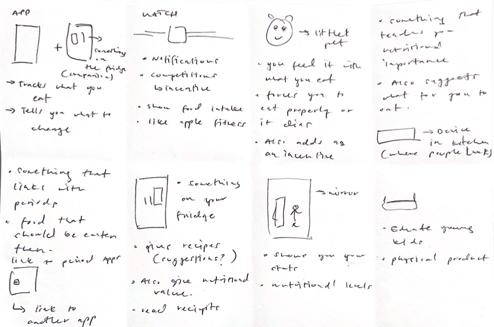 APP
+
something on the fridge (companion)
→ Tracks what you eat
→ Tells you what to change
WATCH
• Notifications
• competitions to incentive
• show food intake
• like apple fitness
→ little pet
• you feed it with
what you eat
• forces you to
eat properly or
it dies
• Also adds as
an incentive
• something that
teaches you
nutritional
importance
• Also suggests
what for you to
eat.
→ Device
in kitchen
(where people look)
• something that
links with
periods
• food that
should be eaten
then.
link to period apps
↳ link to
another app
• something
on your
fridge
• gives recipes
(suggestions?)
• Also give nutritional
value.
• read receipts
→ mirror
• shows you your
stats
• nutritional levels
• Educate young
kids
• physical product